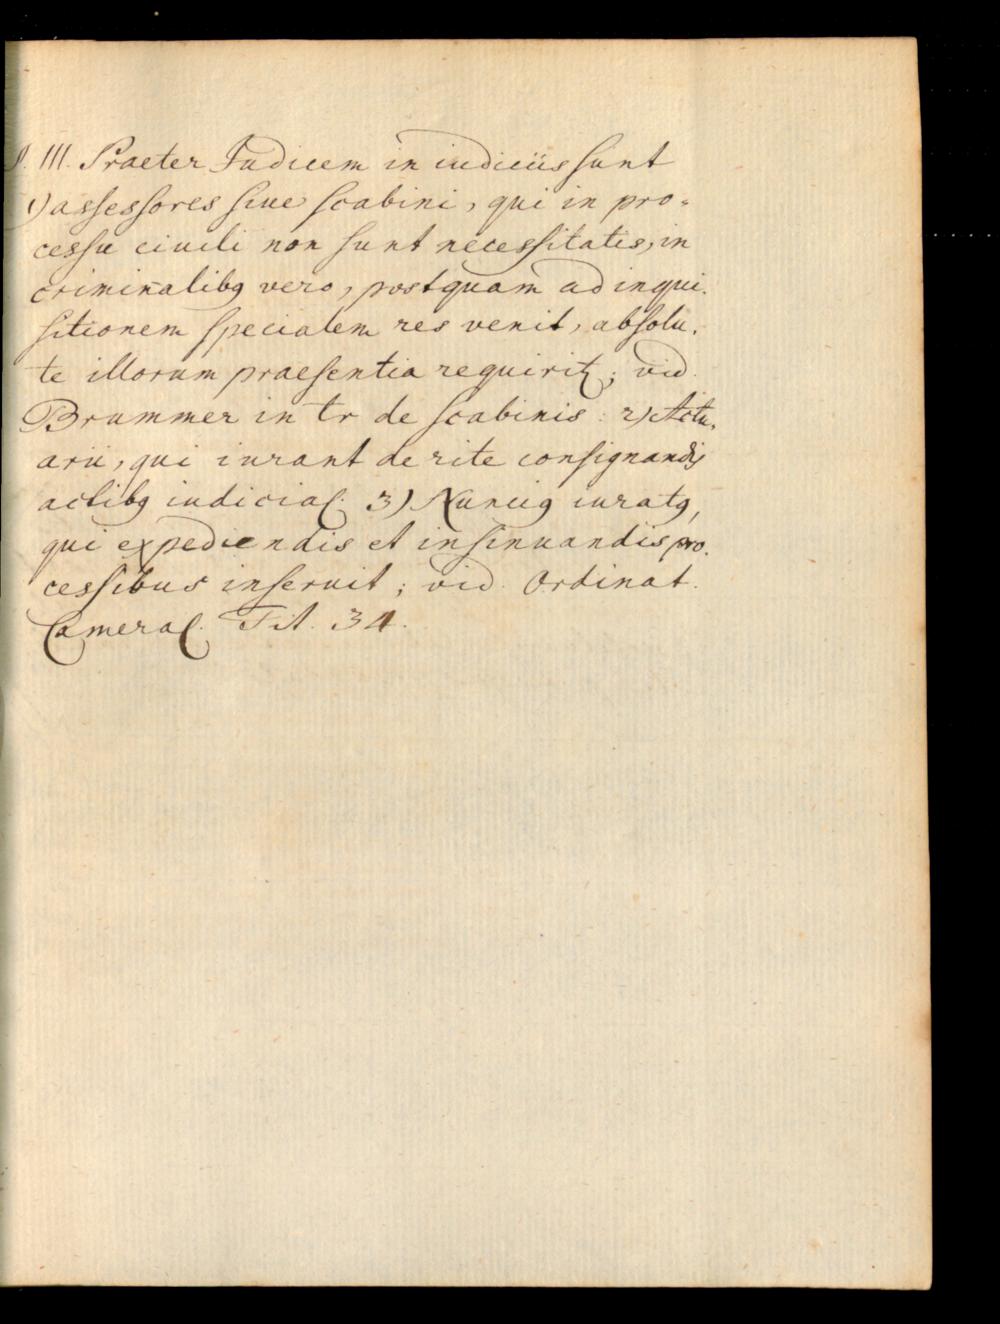 §. III. Praeter Iudicem in iudiciis sunt
1) assessores siue scabini, qui in pro-
cessu ciuili non sunt necessitatis, in
criminalibꝫ vero, postquam ad inqui-
sitionem specialem res venit, absolu-
te illorum praesentia requiritꝛ; vid.
Brummer in tr de scabinis: 2) Actu-
arii, qui iurant de rite consignandis
actibꝫ iudicial. 3) Nunciꝰ iuratꝰ,
qui expediendis et insinuandis pro-
cessibus inseruit; vid. Ordinat.
Cameral. Tit. 34.